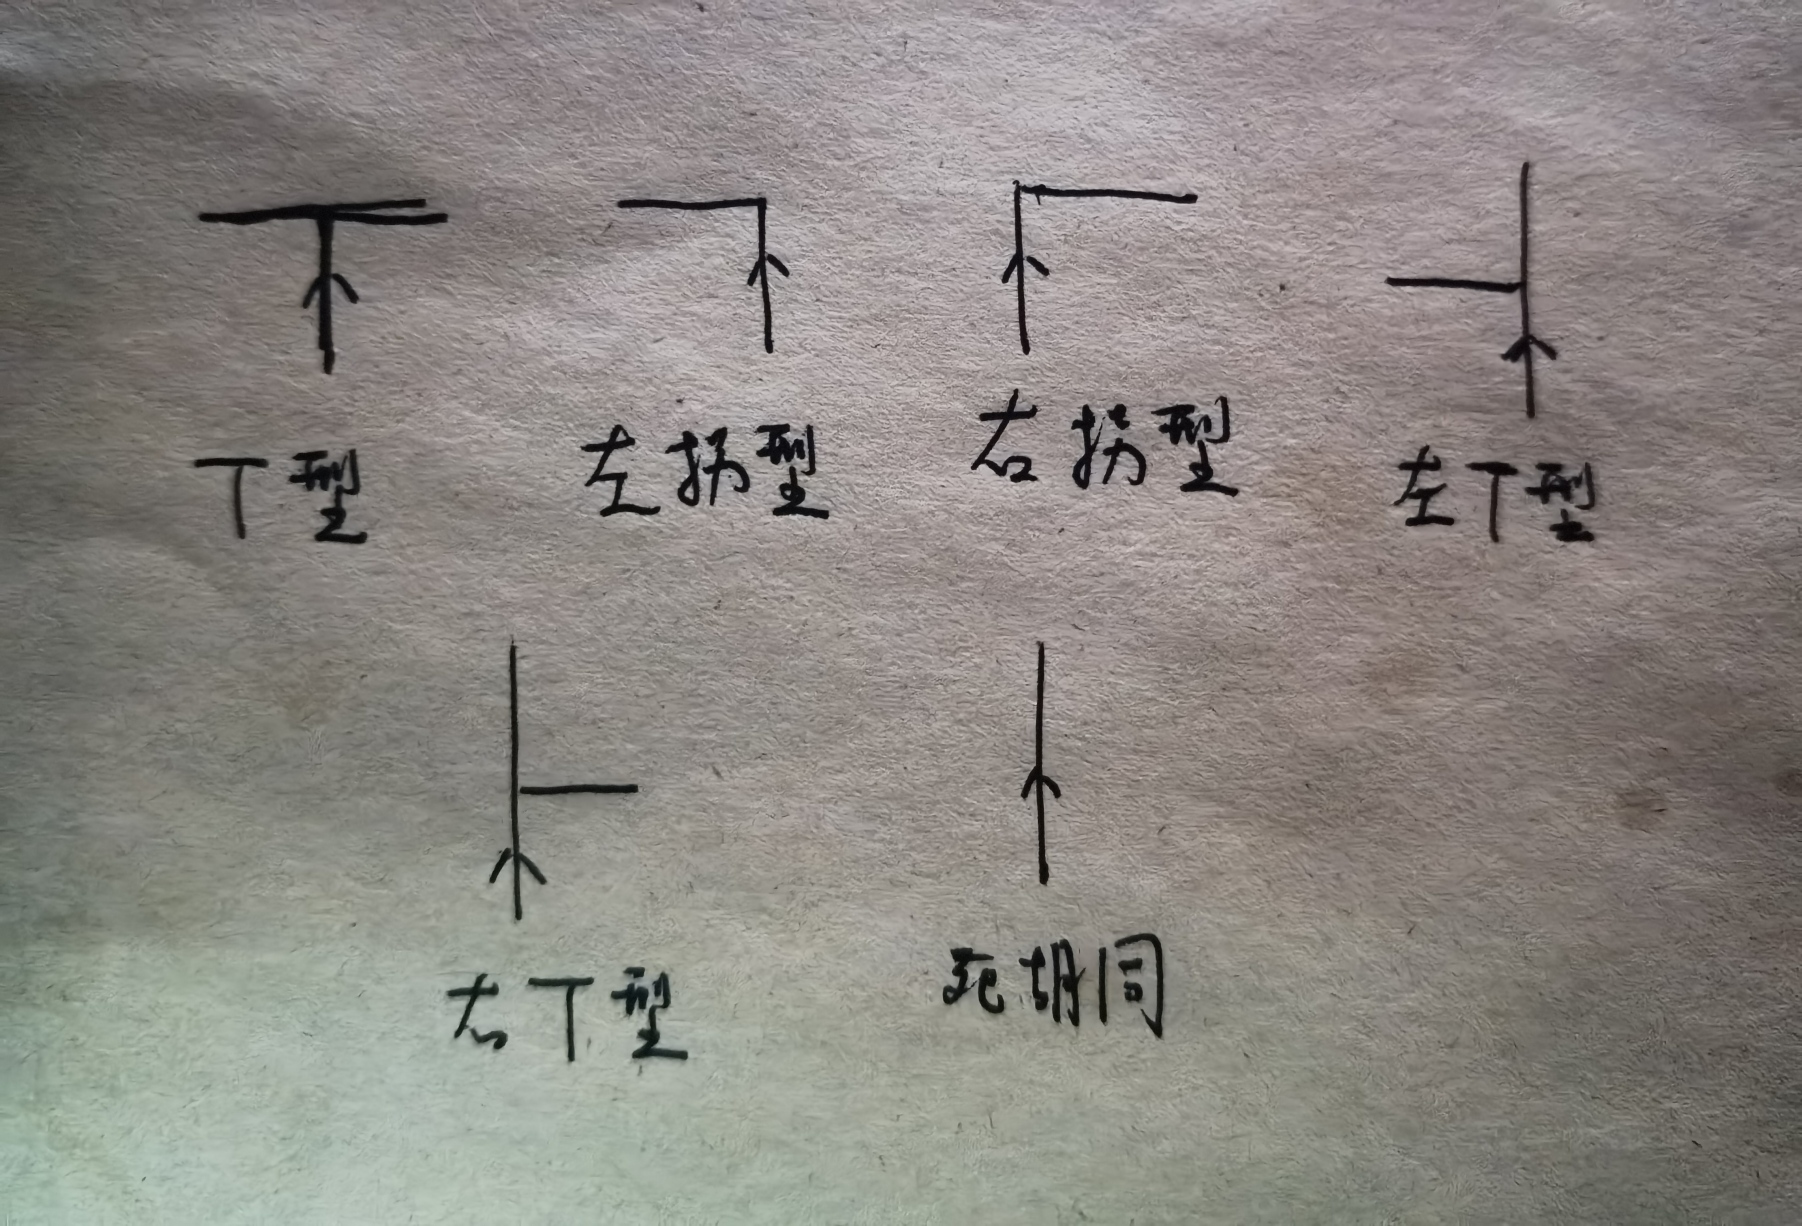 T型
左拐型
右拐型
左T型
右T型
死胡同